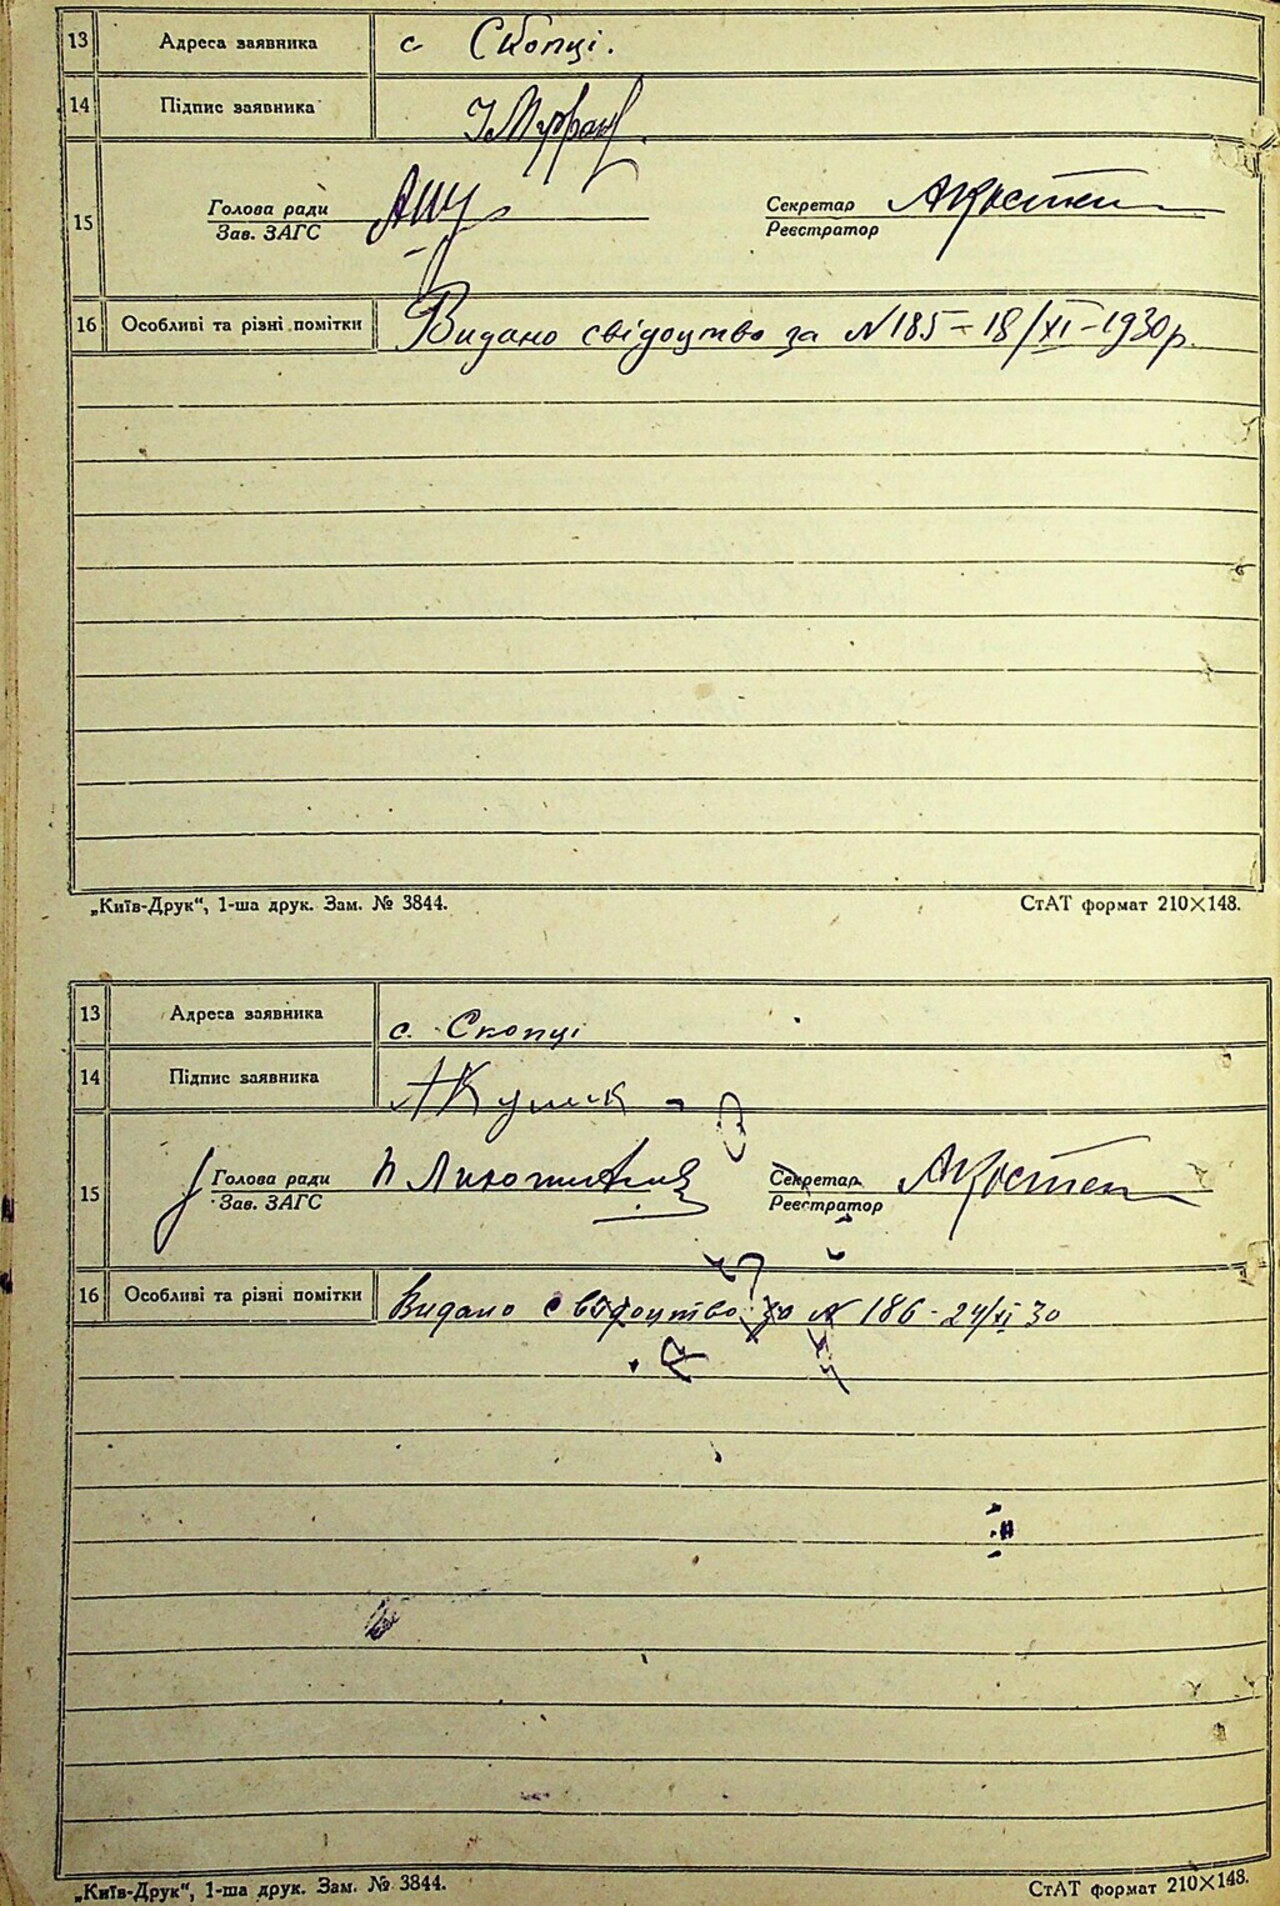 13 Адреса заявника с. Скопці.
14 Підпис заявника
15 Голова ради Секретар АКостен
Зав. ЗАГС Реєстратор
16 Особливі та різні помітки Видано свідоцтво за N 185 - 18/XI - 1930 р.
„Київ-Друк“, 1-ша друк. Зам. № 3844. СтАТ формат 210×148.
13 Адреса заявника с. Скопці
14 Підпис заявника АКулик
15 Голова ради Секретар АКостен
Зав. ЗАГС Реєстратор
16 Особливі та різні помітки Видано свідоцтво за N 186 - 24/XI 30
„Київ-Друк“, 1-ша друк. Зам. № 3844. СтАТ формат 210×148.